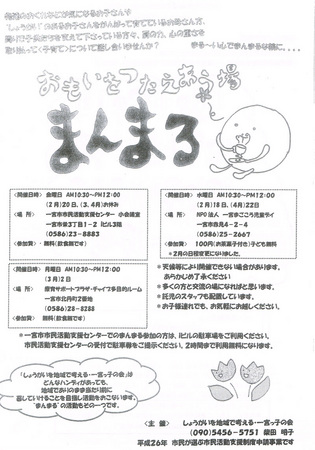 発達のおくれなどが気になるお子さんを
"しょうがい"のあるお子さんをがんばって育てているお母さん方、
取り巻く<子育て>について話し合いませんか?
まる～い心でまんまるな輪に・・・・
おもいをつたえあう場
まんまる
<開催日時> 金曜日 AM10:30～PM12:00
(2月20日、(3、4月)お休み
<場 所> 一宮市市民活動支援センター 小会議室
一宮市栄3丁目1-2 iビル3階
(0586)23-8883
<参加費> 無料(飲食即です)
<開催日時> 水曜日 AM10:30～PM12:00
(2月18日、(4月)22日
<場 所> NPO法人 一宮まごころ児童ライ
一宮市森見4-2-4
(0586)25-2667
<参加費> 100円(お茶菓子付き)子ども無料
*2月の日程変更になりました。
<開催日時> 月曜日 AM10:30～PM12:00
(3月2日
<場 所> 療育サポートプラザ・チャイブ多目的ルーム
一宮市北丹町2番地
(0586)28-8288
<参加費> 無料(飲食即です)
*天候等により開催できない場合があります。
あらかじめ了承ください
*多くの方と交流の場になればと思います。
*託児のスタッフも配置しています。
*お子様連れでも、お気軽にお越しください。
*一宮市市民活動支援センターでのまんまる参加の方は、iビルの駐車場をご利用ください。
市民活動支援センターの受付で駐車券をご提示ください。2時間まで利用無料になります。
『しょうがいを地域で考える・一宮っ子の会』は
どんなハンディがあっても、
地域でありのままあたり前に
暮していけることを目指し活動をおこないます。
"まんまる"の活動もその一つです。
<主催> しょうがいを地域で考える・一宮っ子の会
(090)5456-5751 柴田 明子
平成26年 市民が選ぶ市民活動支援制度申請事業です